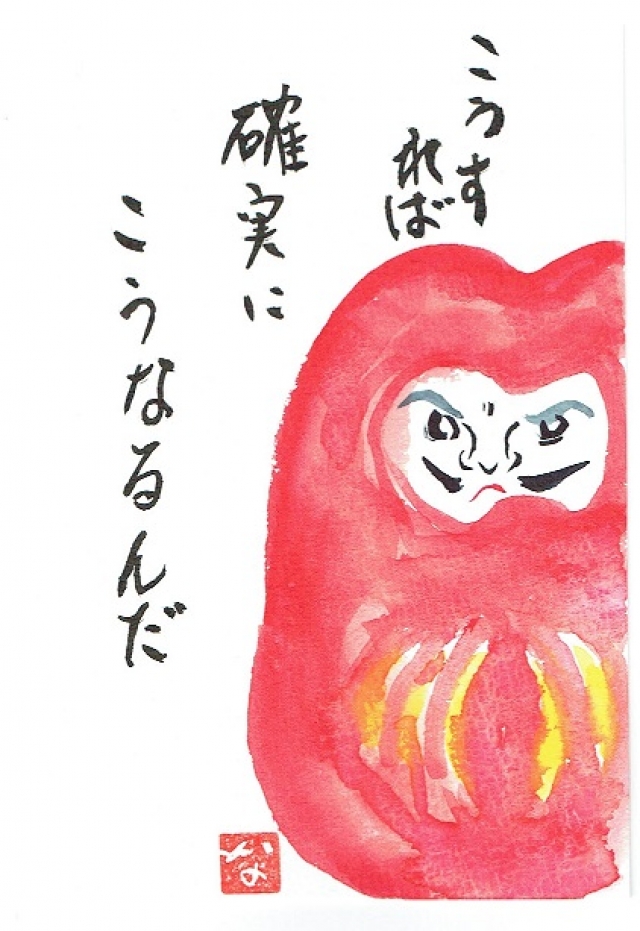 こうす
れば
確実に
こうなるんだ
な